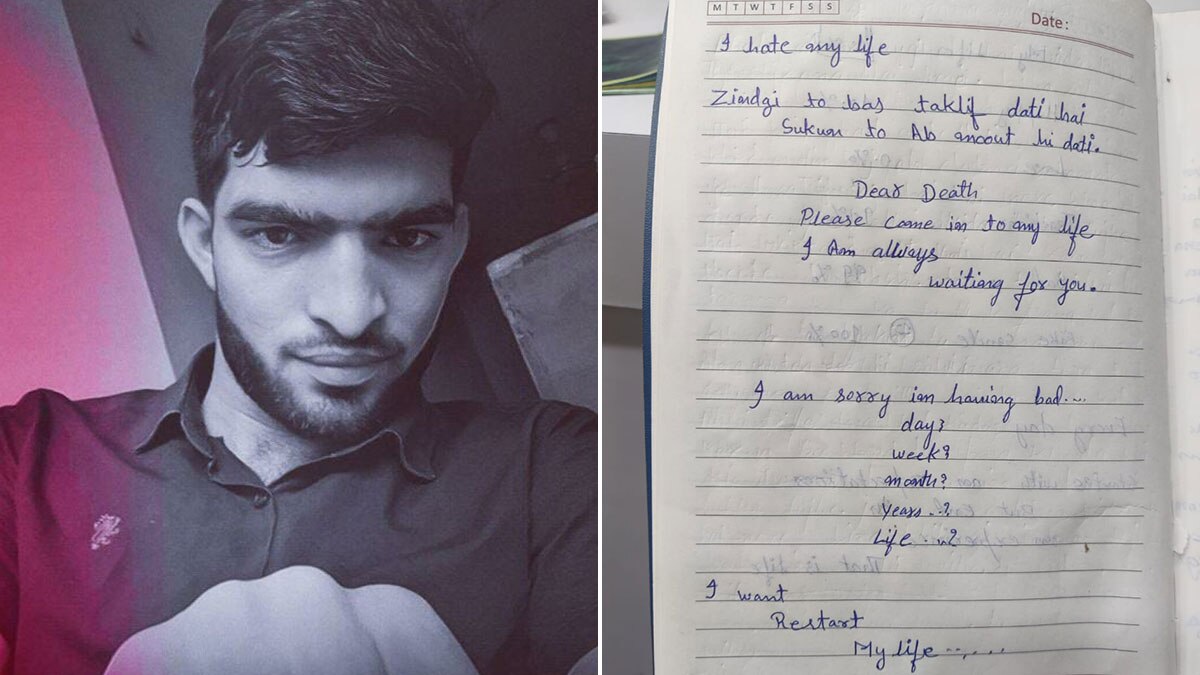 M T W T F S S
Date:
I hate my life
Zindgi to bas taklif dati hai
Sukun to Ab moout hi dati.
Dear Death
Please come in to my life
I Am always
waiting for you.
I am sorry im having bad....
day?
week?
month?
years..?
Life...?
I want
Restart
My life .......